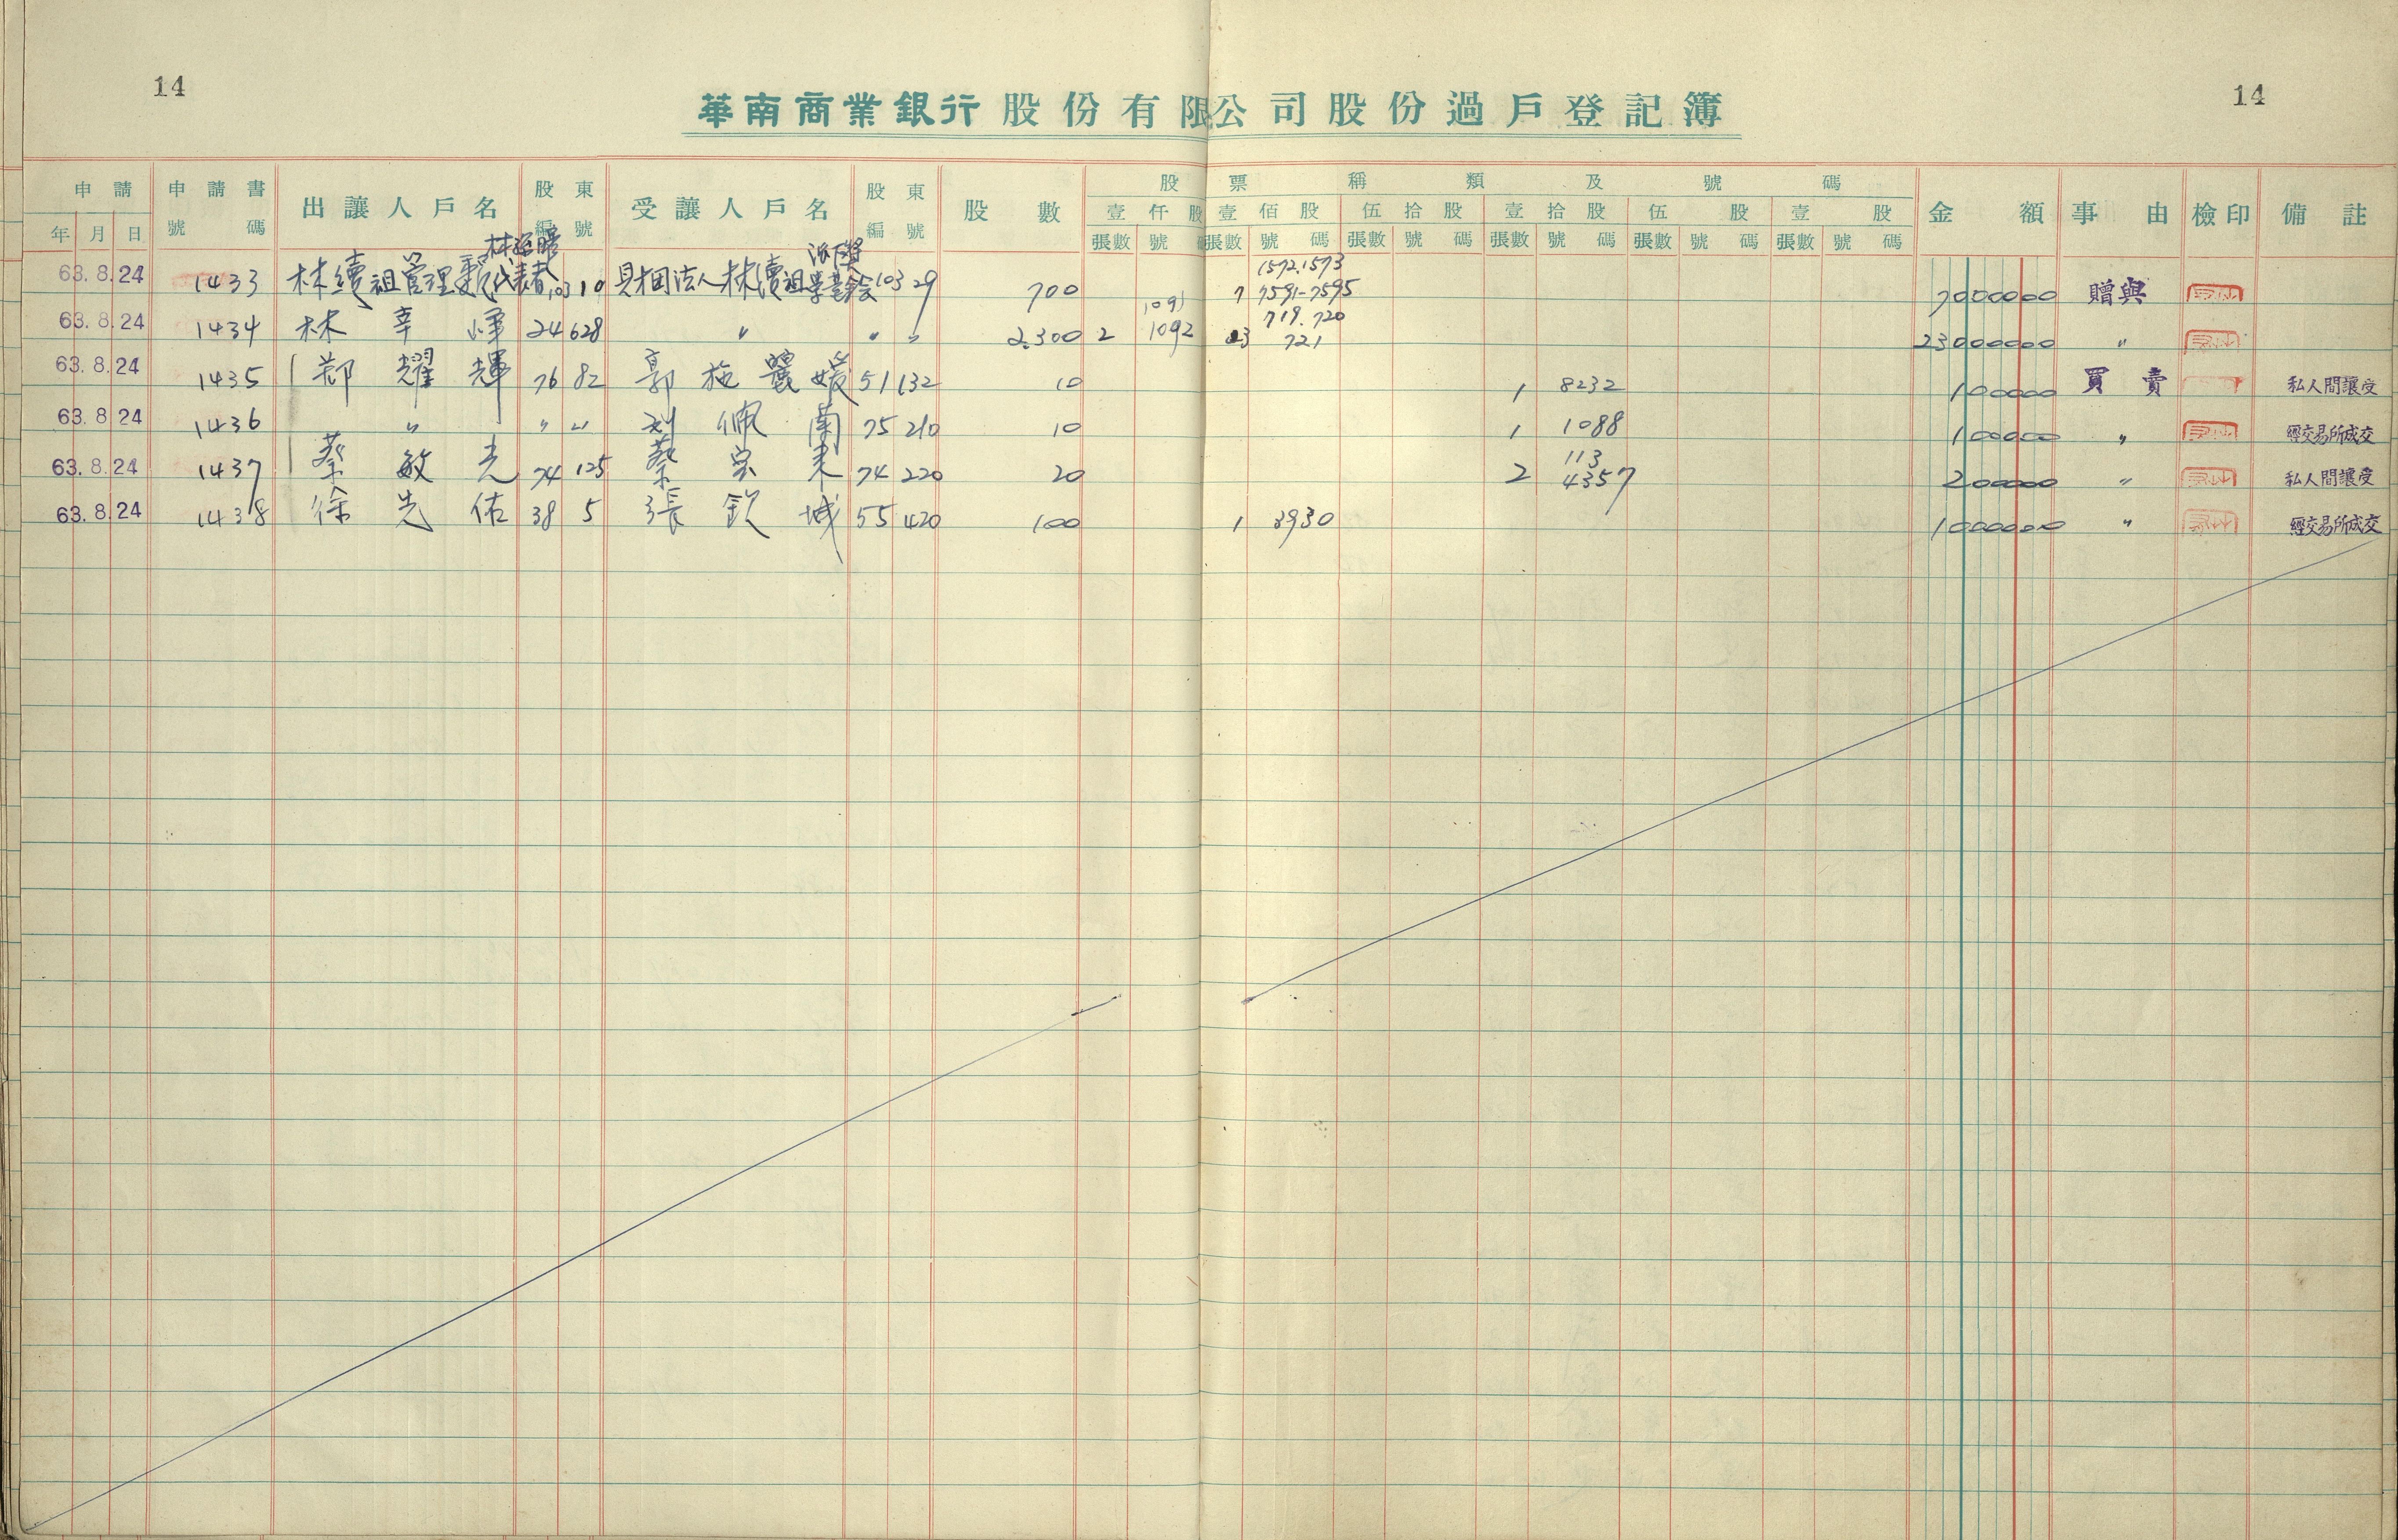 14
14
華南商業銀行股份有限公司股份過戶登記簿
申請 申請書 出讓人戶名 股東 受讓人戶名 股東 股數 股票種類及號碼 金額 事由 檢印 備註
年 月 日 號碼 編號 編號 壹仟股 壹佰股 伍拾股 壹拾股 伍股 壹股
張數 號碼 張數 號碼 張數 號碼 張數 號碼 張數 號碼 張數 號碼
1572.1573
63.8.24 1433 林續祖管理 代表者 103 10 財団法人林瀆祖 103 29 700 7 7591-7595 7000000 贈與
1091 719.720
63.8.24 1434 林 24 628 〃 〃 〃 2,300 2 1092 23 721 23000000 〃
63.8.24 1435 鄭耀輝 76 82 郭施麗媛 51 132 10 1 8232 100000 買賣 私人間讓受
63.8.24 1436 〃 〃 〃 刘佩蘭 75 210 10 1 1088 100000 〃 經交易所成交
113
63.8.24 1437 蔡敏光 74 125 蔡宗來 74 220 20 2 4357 200000 〃 私人間讓受
63.8.24 1438 徐先佑 38 5 張欽城 55 420 100 1 3930 1000000 〃 經交易所成交